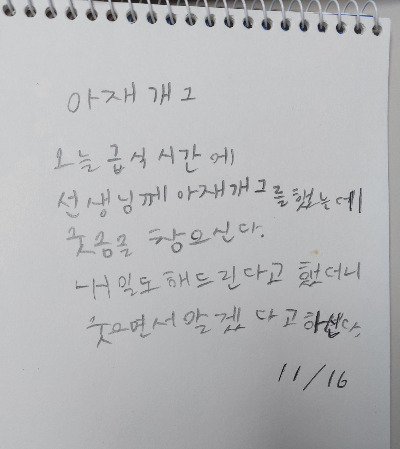 아재개그
오늘 급식 시간에
선생님께 아재개그를 했는데
웃음을 참으신다.
내일도 해드린다고 했더니
웃으면서 알겠다고 하신다.
11/16